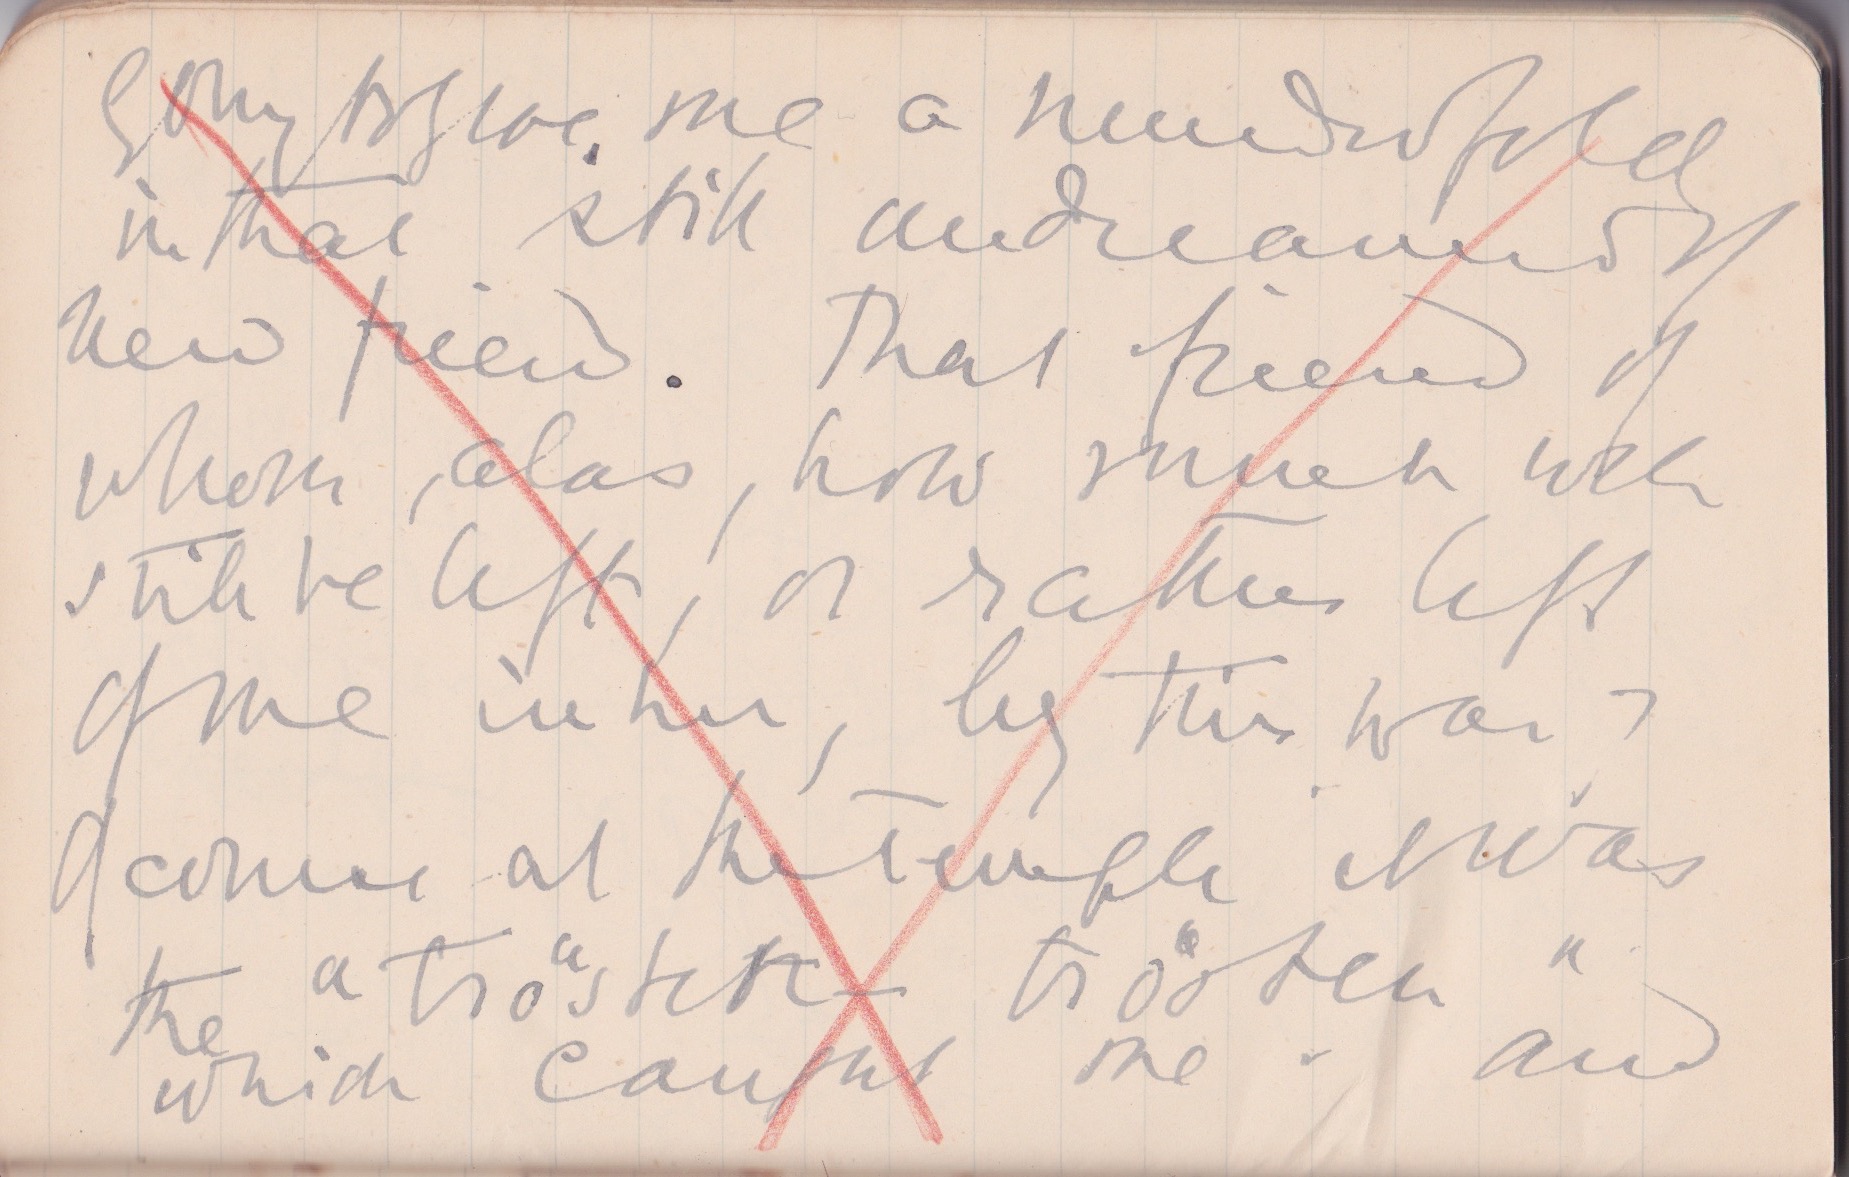 going to give me a hundredfold
in that still undreamed of
new friend. That friend of
whom, alas, how much will
still be left, or rather left
of me in her, by this war?
Of course at the Temple it was
the "tröstete trösten"
which caught me. and